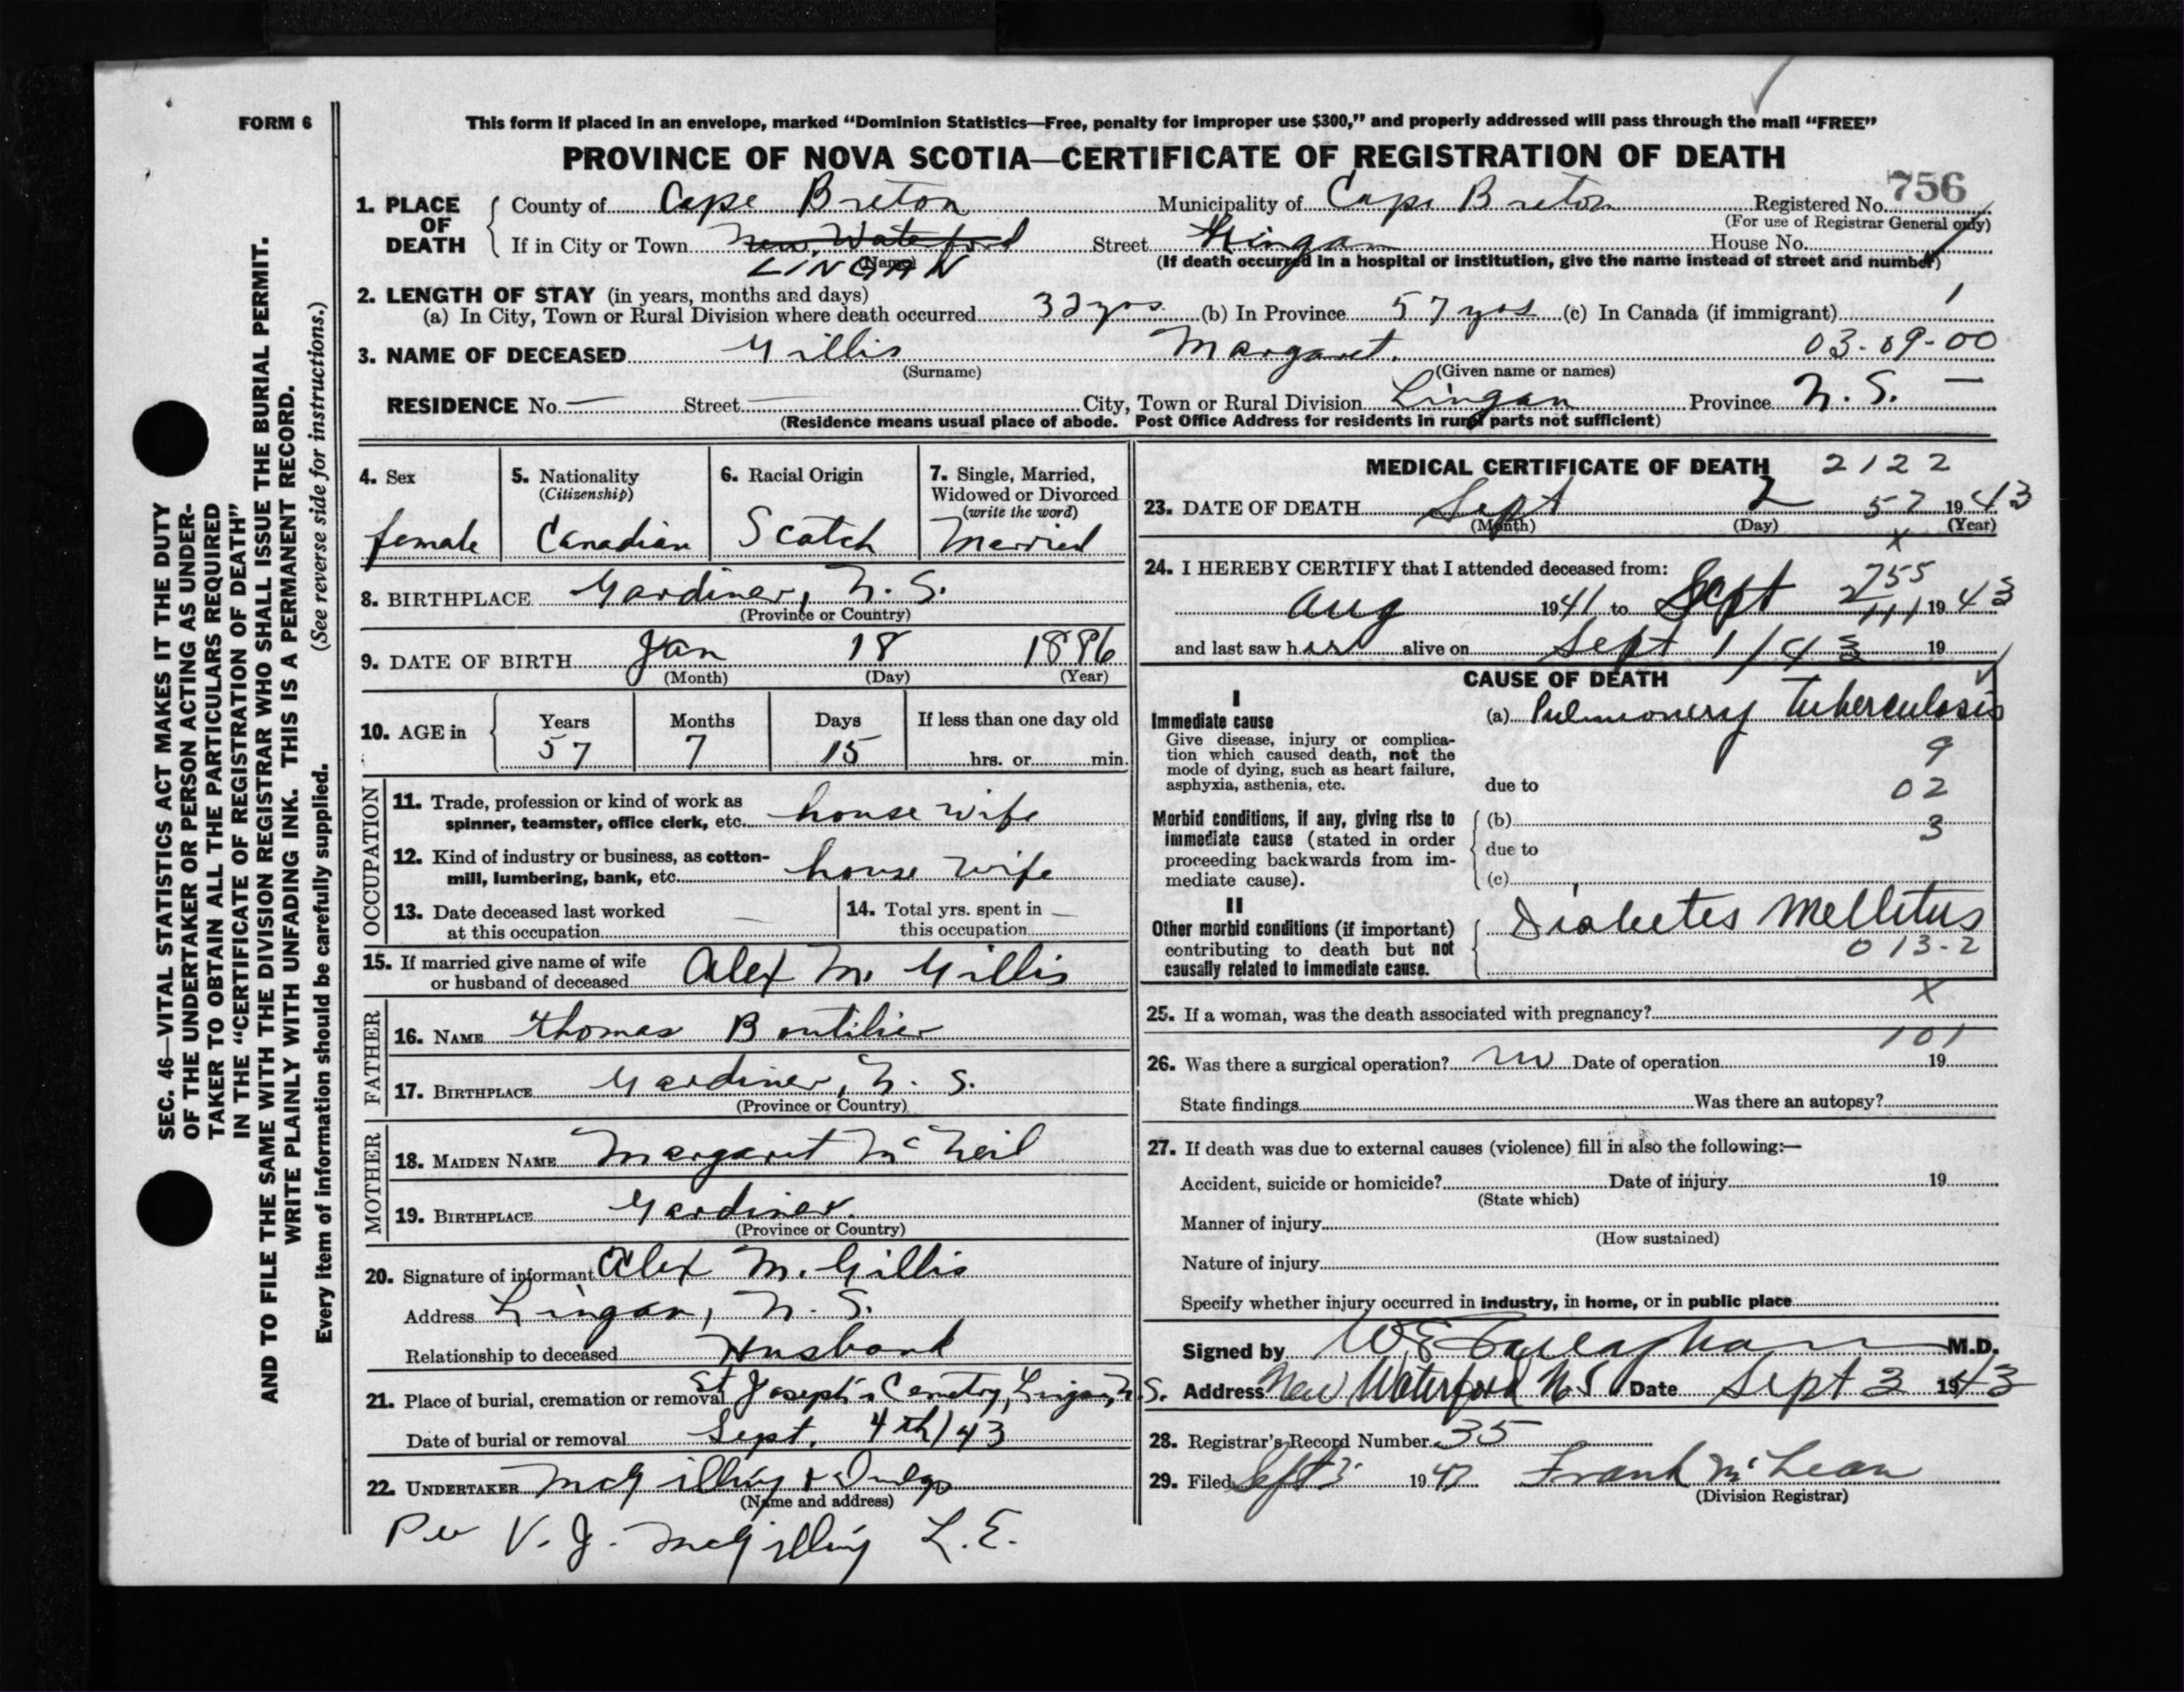 FORM 6
This form if placed in an envelope, marked "Dominion Statistics—Free, penalty for improper use $300," and properly addressed will pass through the mail "FREE"
PROVINCE OF NOVA SCOTIA—CERTIFICATE OF REGISTRATION OF DEATH
756
1. PLACE OF DEATH
County of Cape Breton Municipality of Cape Breton Registered No.
(For use of Registrar General only)
If in City or Town New Waterford Street Lingan House No.
LINGAN (Name) (If death occurred in a hospital or institution, give the name instead of street and number)
2. LENGTH OF STAY (in years, months and days)
(a) In City, Town or Rural Division where death occurred 32 yrs (b) In Province 57 yrs (c) In Canada (if immigrant) 1
3. NAME OF DECEASED Gillis Margaret. 03-09-00
(Surname) (Given name or names)
RESIDENCE No. — Street — City, Town or Rural Division Lingan Province N. S. —
(Residence means usual place of abode. Post Office Address for residents in rural parts not sufficient)
4. Sex
female
5. Nationality
(Citizenship)
Canadian
6. Racial Origin
Scotch
7. Single, Married,
Widowed or Divorced
(write the word)
Married
8. BIRTHPLACE Gardiner, N. S.
(Province or Country)
9. DATE OF BIRTH Jan 18 1886
(Month) (Day) (Year)
10. AGE in
Years Months Days If less than one day old
57 7 15 hrs. or min.
OCCUPATION
11. Trade, profession or kind of work as
spinner, teamster, office clerk, etc. house wife
12. Kind of industry or business, as cotton-
mill, lumbering, bank, etc. house wife
13. Date deceased last worked
at this occupation —
14. Total yrs. spent in
this occupation —
15. If married give name of wife
or husband of deceased Alex M. Gillis
FATHER
16. NAME Thomas Boutilier
17. BIRTHPLACE Gardiner, N. S.
(Province or Country)
MOTHER
18. MAIDEN NAME Margaret McNeil
19. BIRTHPLACE Gardiner.
(Province or Country)
20. Signature of informant Alex M. Gillis
Address Lingan, N. S.
Relationship to deceased Husband
21. Place of burial, cremation or removal St Joseph's Cemetry, Lingan, N. S.
Date of burial or removal Sept. 4th/43
22. UNDERTAKER McGillivy &
(Name and address)
Per V. J. McGillivy L. E.
MEDICAL CERTIFICATE OF DEATH 2122
23. DATE OF DEATH Sept 2 57 1943
(Month) (Day) (Year)
x
24. I HEREBY CERTIFY that I attended deceased from:
755
Aug 1941 to Sept 2 1943
111
and last saw her alive on Sept 1/43 19
CAUSE OF DEATH
I
Immediate cause
Give disease, injury or complica-
tion which caused death, not the
mode of dying, such as heart failure,
asphyxia, asthenia, etc.
(a) Pulmonery Tuberculosis
9
due to 02
Morbid conditions, if any, giving rise to
immediate cause (stated in order
proceeding backwards from im-
mediate cause).
(b) 3
due to
(c)
II
Other morbid conditions (if important)
contributing to death but not
causally related to immediate cause.
Diabetes Mellitus
013-2
x
25. If a woman, was the death associated with pregnancy?
101
26. Was there a surgical operation? no Date of operation 19
State findings Was there an autopsy?
27. If death was due to external causes (violence) fill in also the following:—
Accident, suicide or homicide? Date of injury 19
(State which)
Manner of injury
(How sustained)
Nature of injury
Specify whether injury occurred in industry, in home, or in public place
Signed by W E Callaghan M.D.
Address New Waterford N S Date Sept 3 1943
28. Registrar's Record Number 35
29. Filed Sept 3 1943 Frank McLean
(Division Registrar)
SEC. 46—VITAL STATISTICS ACT MAKES IT THE DUTY
OF THE UNDERTAKER OR PERSON ACTING AS UNDER-
TAKER TO OBTAIN ALL THE PARTICULARS REQUIRED
IN THE "CERTIFICATE OF REGISTRATION OF DEATH"
AND TO FILE THE SAME WITH THE DIVISION REGISTRAR WHO SHALL ISSUE THE BURIAL PERMIT.
WRITE PLAINLY WITH UNFADING INK. THIS IS A PERMANENT RECORD.
Every item of information should be carefully supplied. (See reverse side for instructions.)